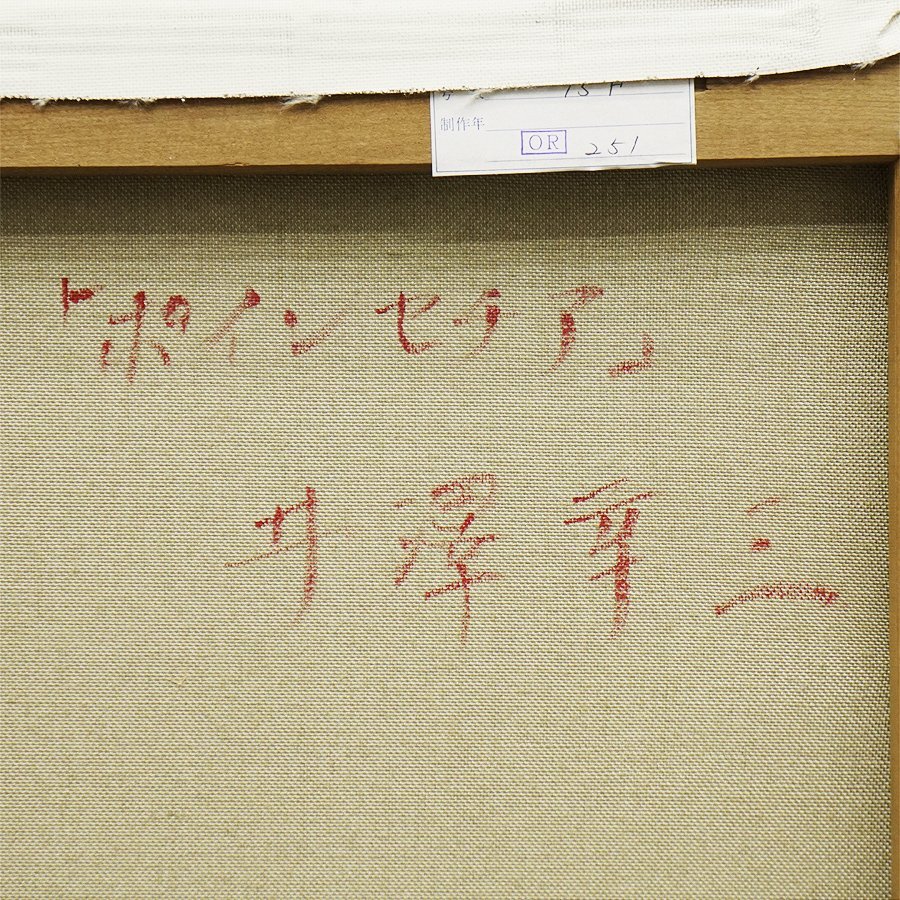 15 F
制作年
OR 251
「ポインセチア」
井澤幸三